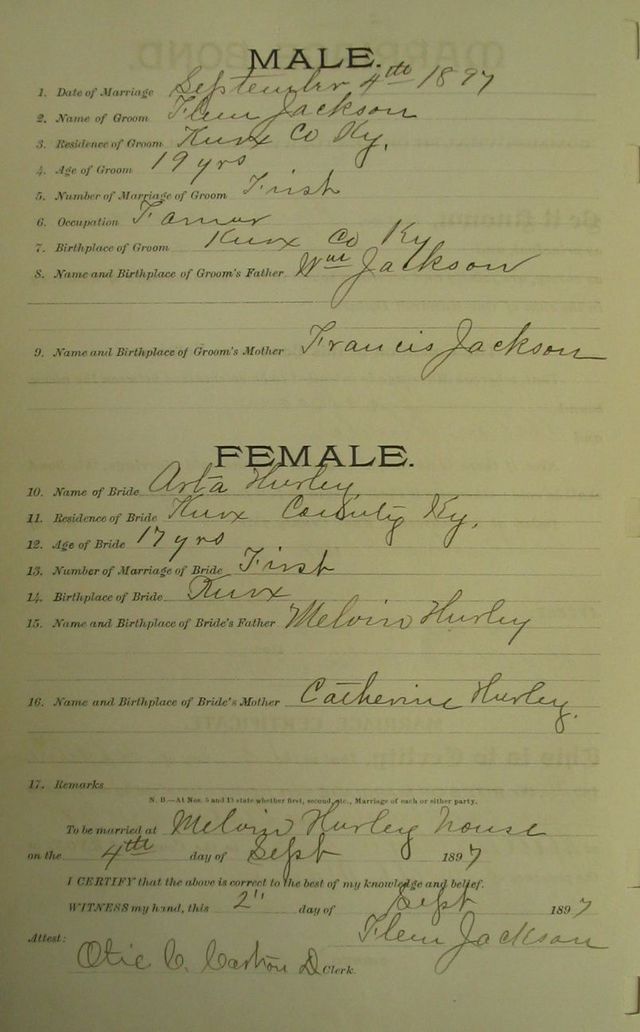 MALE.
1. Date of Marriage September 4th 1897
2. Name of Groom Flem Jackson
3. Residence of Groom Knox Co Ky.
4. Age of Groom 19 yrs
5. Number of Marriage of Groom First
6. Occupation Farmer
7. Birthplace of Groom Knox Co Ky
8. Name and Birthplace of Groom's Father Wm Jackson
9. Name and Birthplace of Groom's Mother Francis Jackson
FEMALE.
10. Name of Bride Arta Hurley
11. Residence of Bride Knox County Ky.
12. Age of Bride 17 yrs
13. Number of Marriage of Bride First
14. Birthplace of Bride Knox
15. Name and Birthplace of Bride's Father Melvin Hurley
16. Name and Birthplace of Bride's Mother Catherine Hurley.
17. Remarks
N. B.—At Nos. 5 and 13 state whether first, second, etc., Marriage of each or either party.
To be married at Melvin Hurley house
on the 4th day of Sept 1897
I CERTIFY that the above is correct to the best of my knowledge and belief.
WITNESS my hand, this 2" day of Sept 1897
Flem Jackson
Attest:
C. D Clerk.